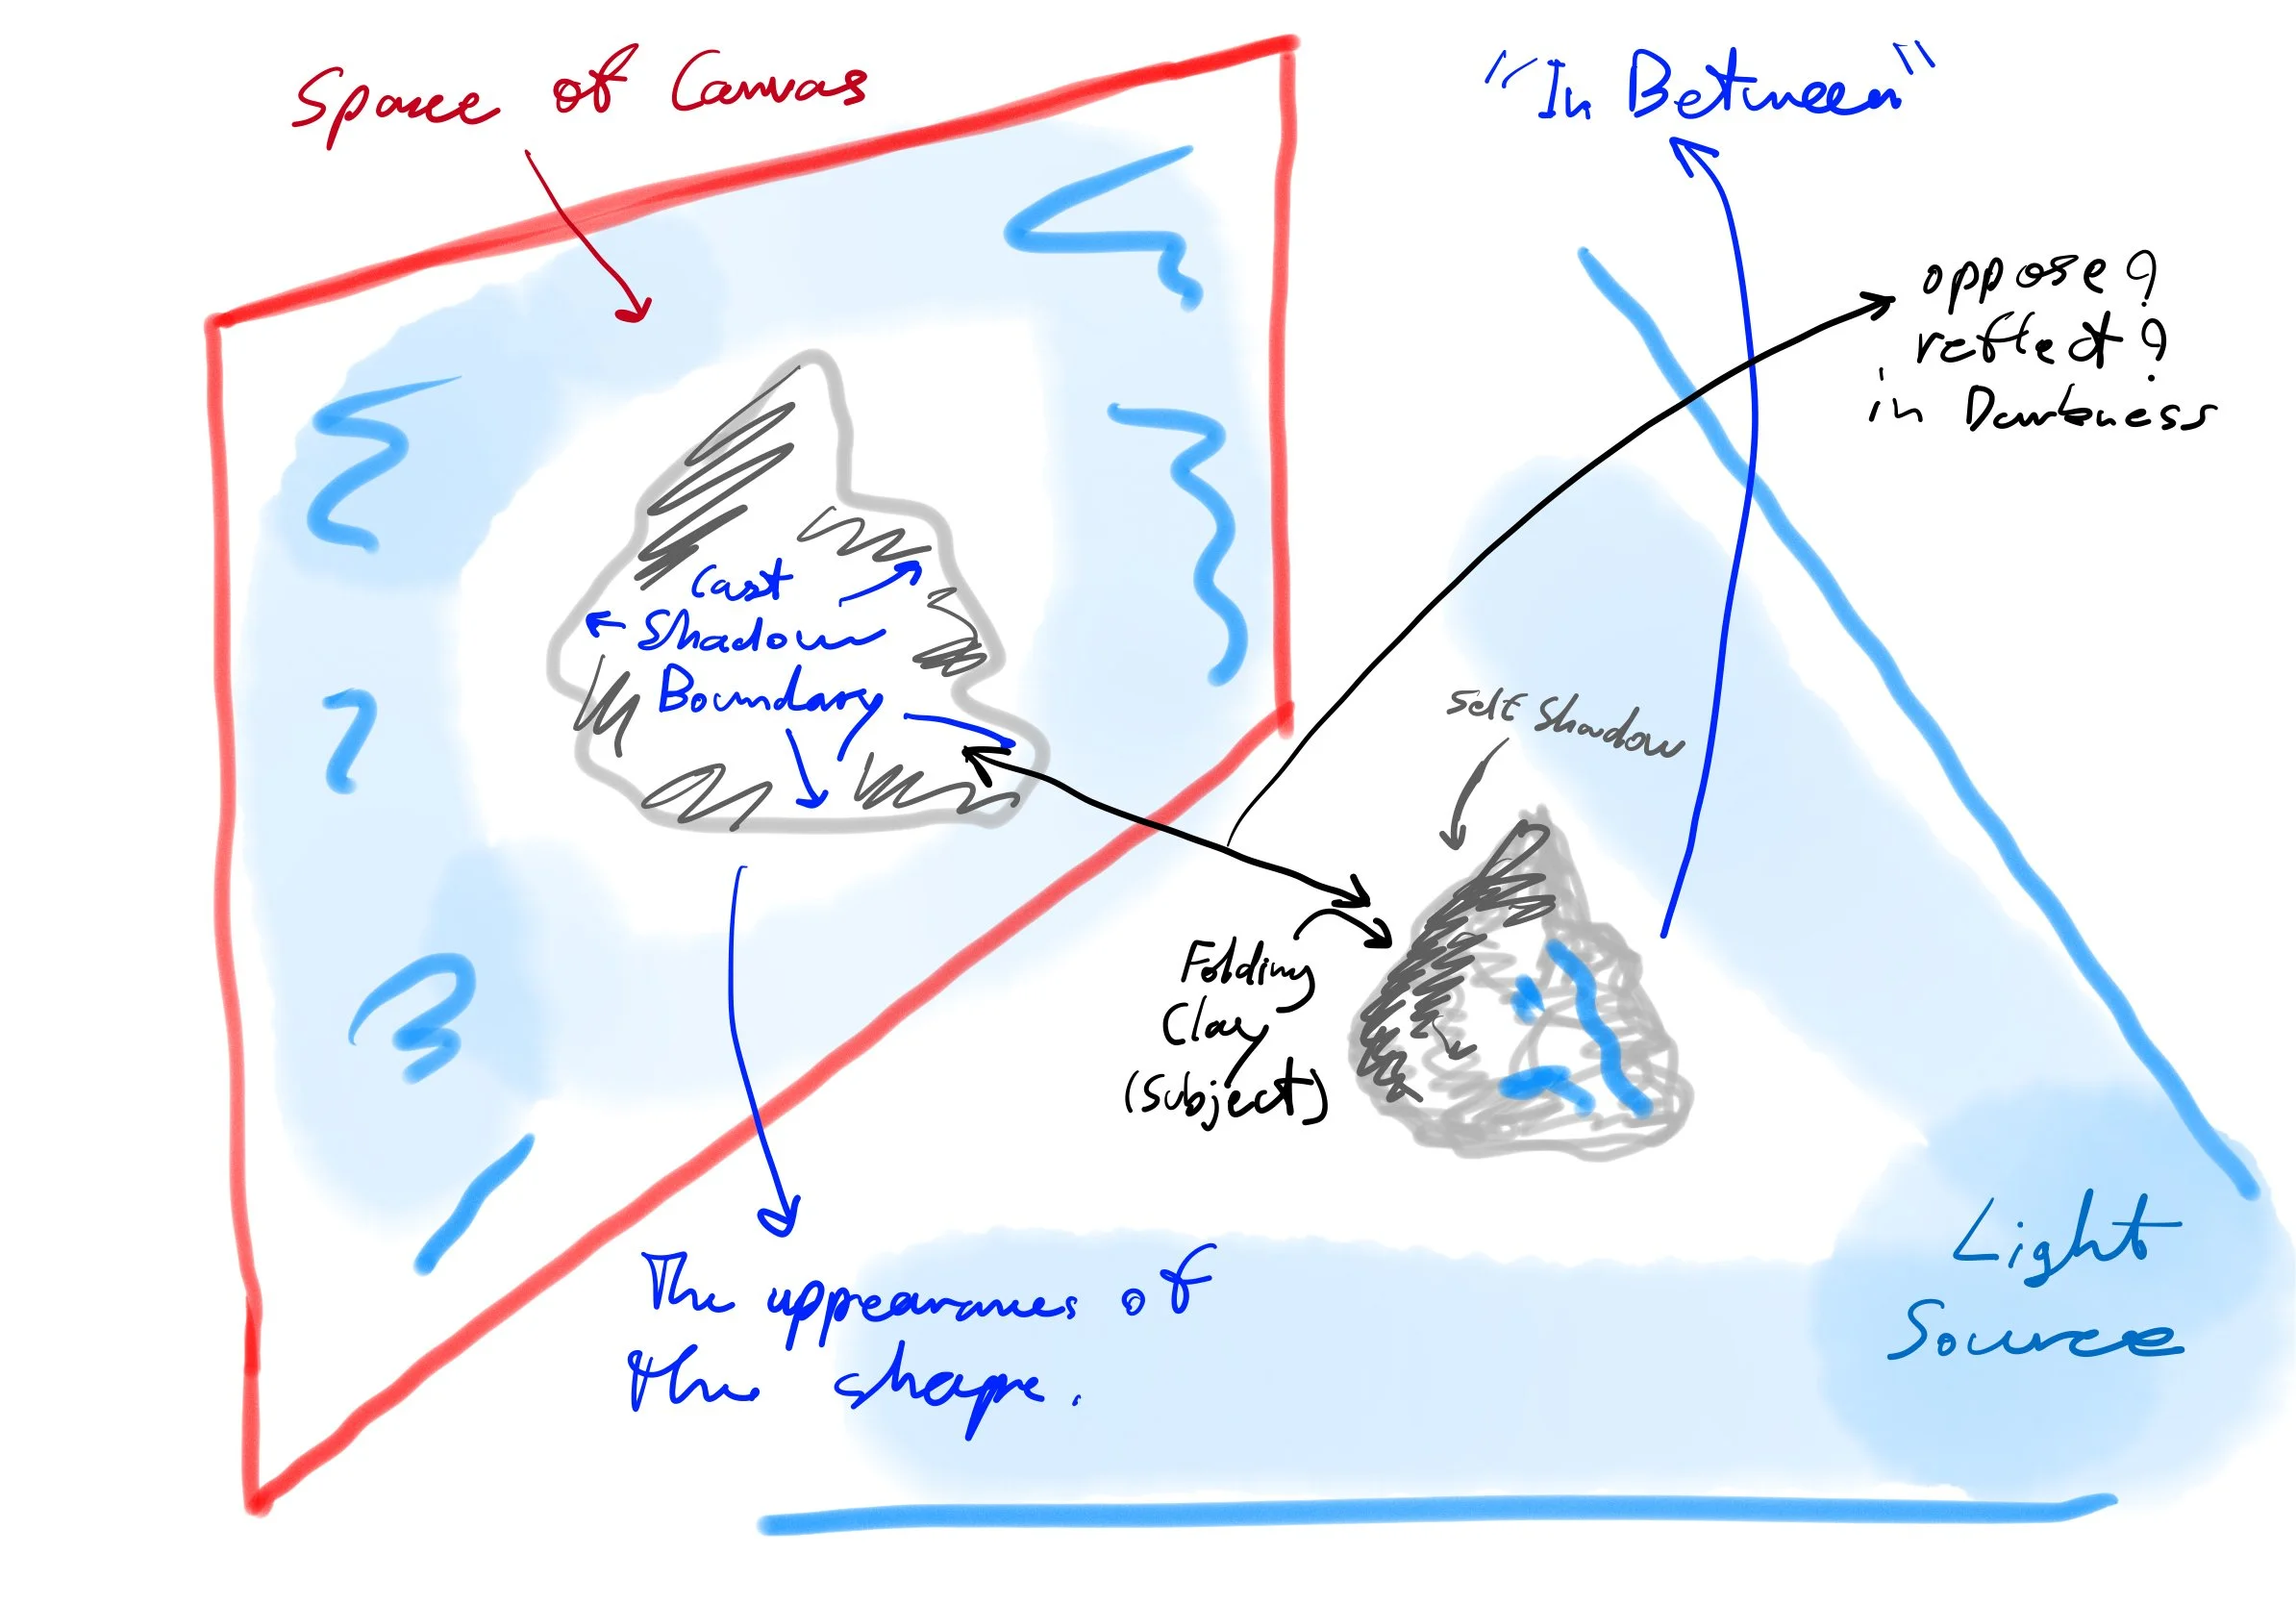 Space of Canvas
"In Between"
oppose?
reflect?
in Darkness
Cast
Shadow
Boundary
Self Shadow
Folding
Clay
(Subject)
The appearances of
the shape.
Light
Source